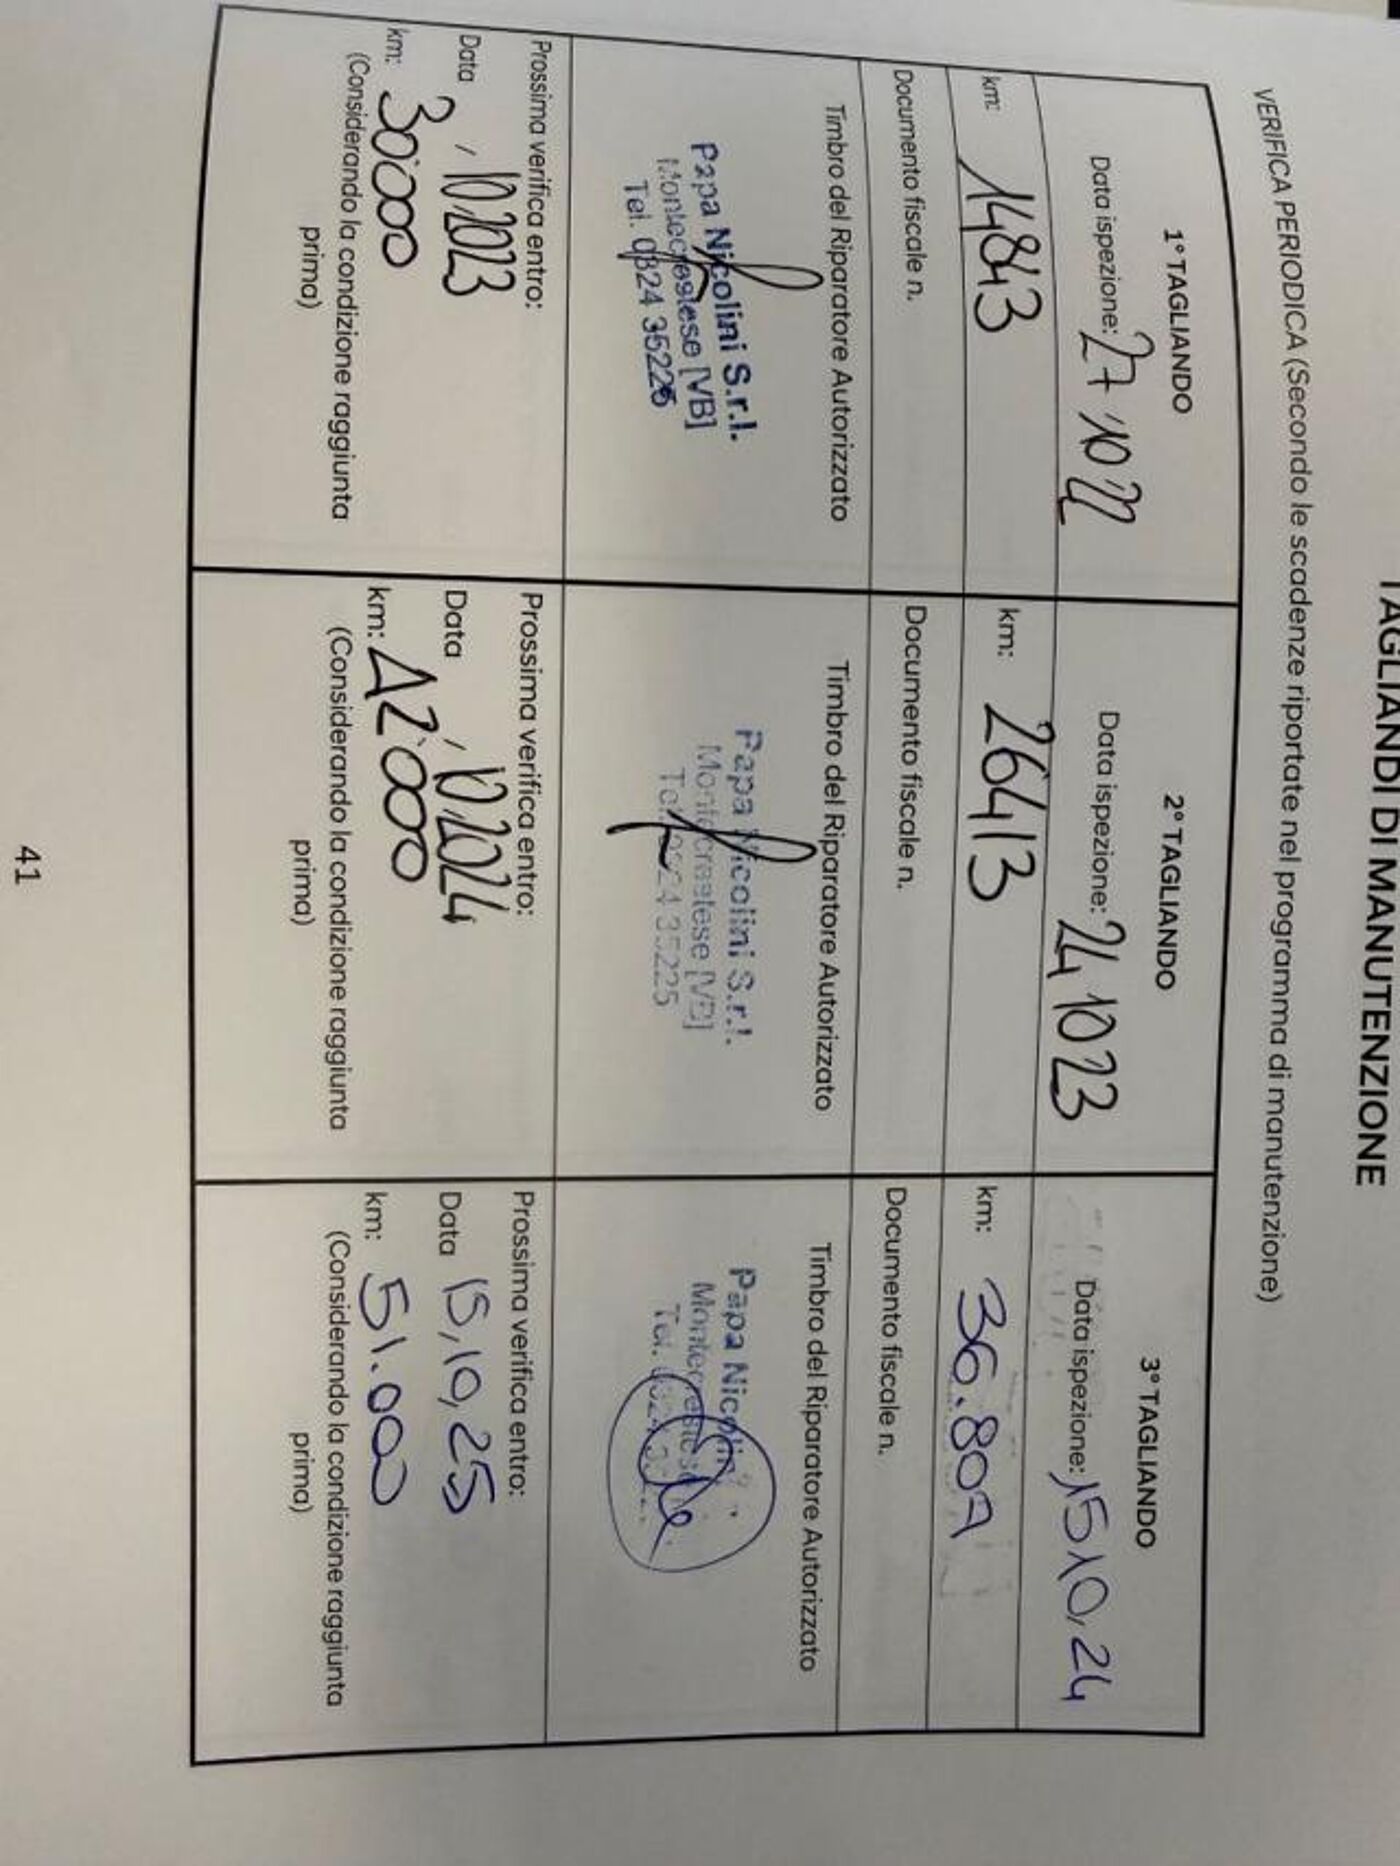 TAGLIANDI DI MANUTENZIONE
VERIFICA PERIODICA (Secondo le scadenze riportate nel programma di manutenzione)
1° TAGLIANDO
Data ispezione: 27 10 22
km: 14843
Documento fiscale n.
Timbro del Riparatore Autorizzato
Papa Nicolini S.r.l.
Montecrestese [VB]
Tel. 0324 35225
Prossima verifica entro:
Data , 10 2023
km: 30'000
(Considerando la condizione raggiunta
prima)
2° TAGLIANDO
Data ispezione: 24 10 23
km: 26413
Documento fiscale n.
Timbro del Riparatore Autorizzato
Papa Nicolini S.r.l.
Montecrestese [VB]
Tel. 0324 35225
Prossima verifica entro:
Data , 10.2024
km: 42'000
(Considerando la condizione raggiunta
prima)
3° TAGLIANDO
Data ispezione: 15 10, 24
km: 36.807
Documento fiscale n.
Timbro del Riparatore Autorizzato
Papa Nicolini
Montecrestese
Tel.
Prossima verifica entro:
Data 15, 10, 25
km: 51.000
(Considerando la condizione raggiunta
prima)
41